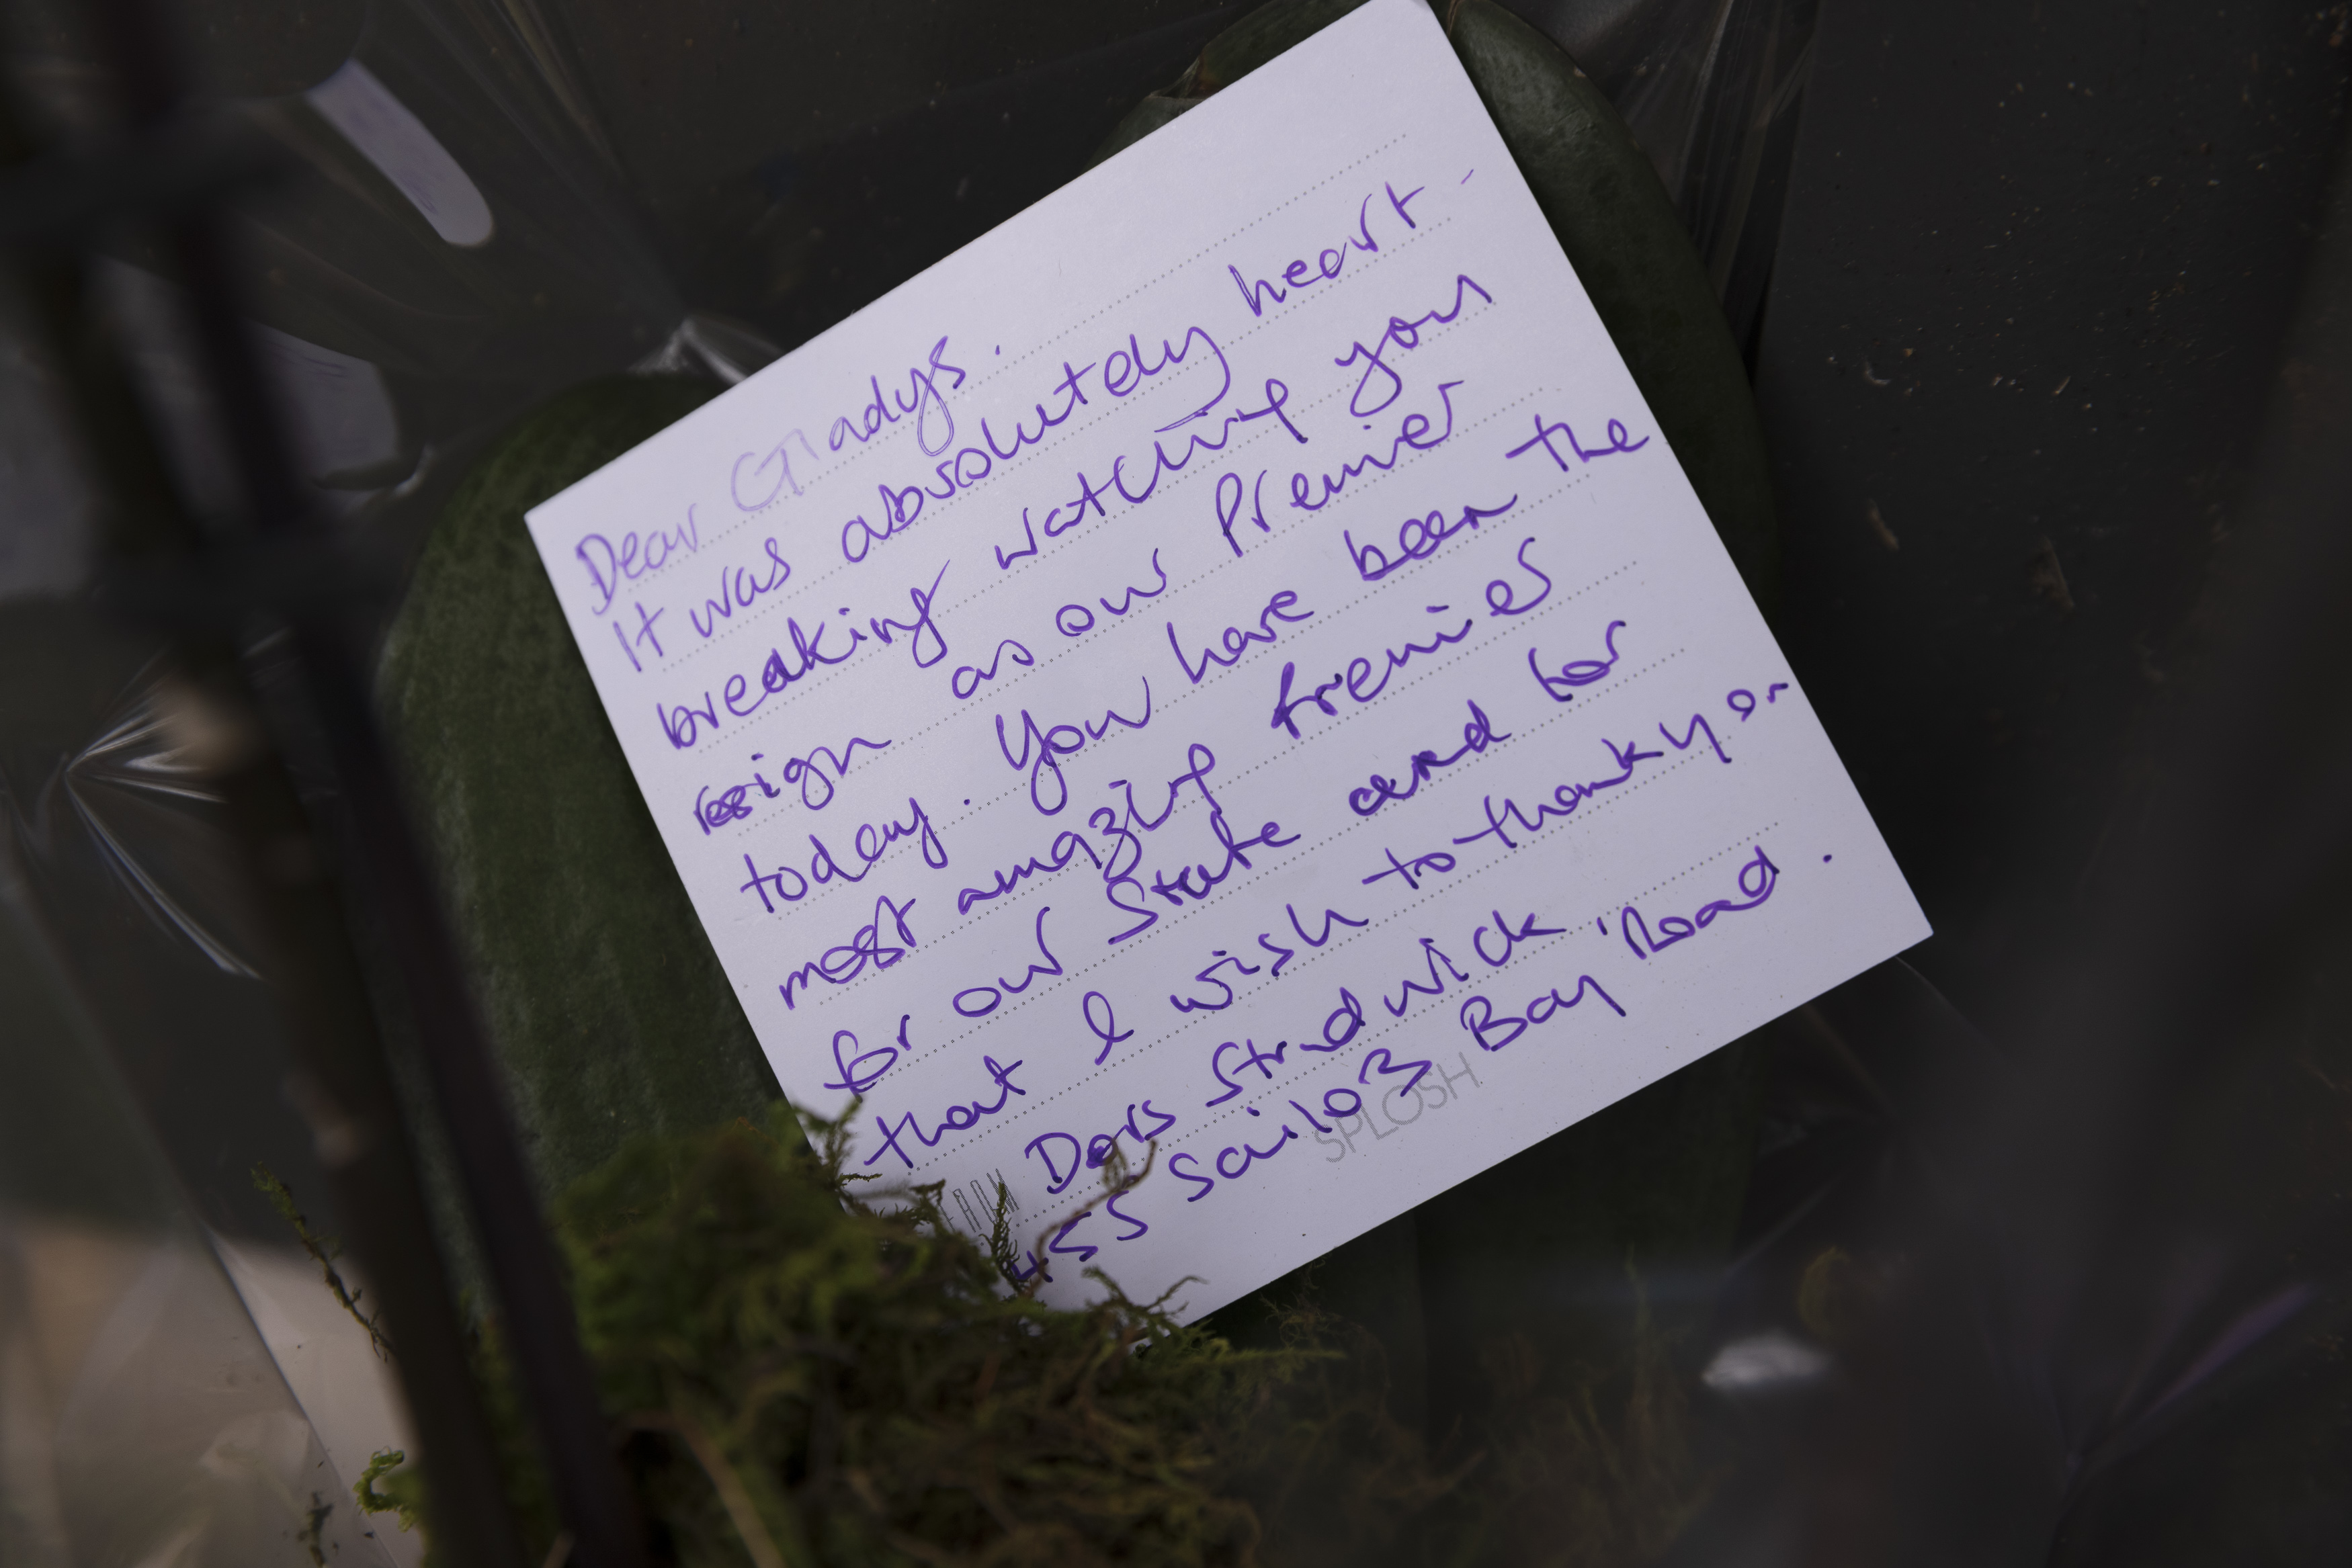 Dear Gladys.
It was absolutely heart-
breaking watching you
resign as our Premier
today. You have been the
most amazing Premier
for our State and for
that I wish to thank you
Doris Strudwick.
455 Sailors Bay Road.
SPLOSH